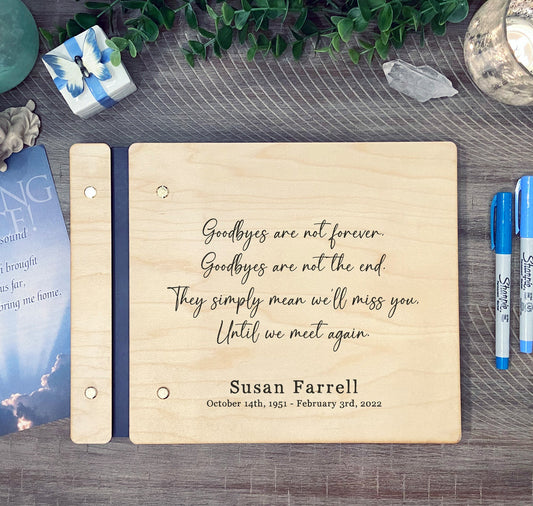 Goodbyes are not forever.
Goodbyes are not the end.
They simply mean we'll miss you.
Until we meet again.
Susan Farrell
October 14th, 1951 - February 3rd, 2022
sound
brought
us far,
bring me home.
Sharpie
Sharpie